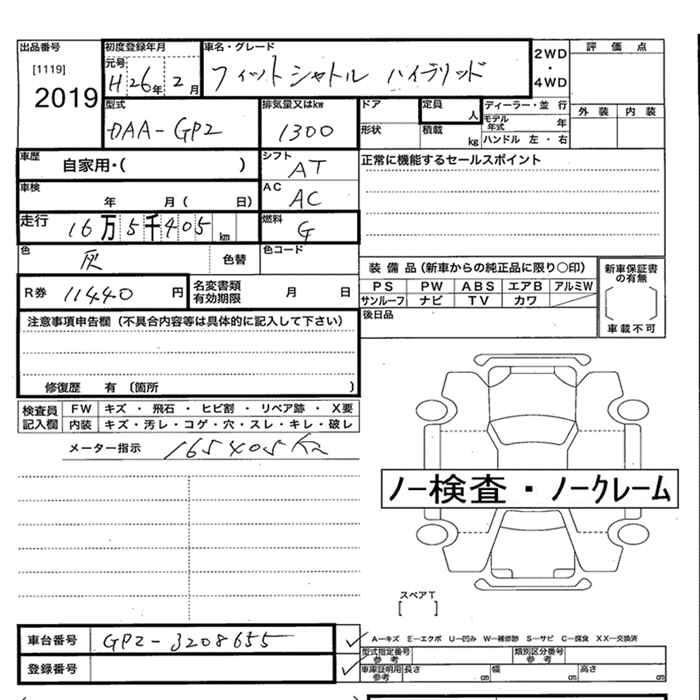 出品番号 初度登録年月 車名・グレード 評価点
[1119] 元号 フィットシャトル ハイブリッド 2WD・4WD
2019 H26年2月 外装 内装
型式 排気量又はkw ドア 定員 人 ディーラー・並 行
DAA-GP2 1300 形状 積載 kg モデル年式 年
ハンドル 左・右
車歴 自家用・( ) シフト AT 正常に機能するセールスポイント
車検 年 月( 日) AC AC
走行 16万5千405km 燃料 G
色 灰 色替 色コード
R券 11440円 名変書類有効期限 月 日
装備品(新車からの純正品に限り〇印) 新車保証書の有無
PS PW ABS エアB アルミW
サンルーフ ナビ TV カワ
[ ]
後日品 車載不可
注意事項申告欄(不具合内容等は具体的に記入して下さい)
修復歴 有(箇所 )
検査員記入欄 FW キズ・飛石・ヒビ割・リペア跡・X要
内装 キズ・汚レ・コゲ・穴・スレ・キレ・破レ
メーター指示 165405Km
ノー検査・ノークレーム
スペアT
[ ]
車台番号 GP2-3208655
A-キズ E-エクボ U-凹み W-補修跡 S-サビ C-腐食 XX-交換済
登録番号 型式指定番号 参考 類別区分番号 参考
車庫証明用 参考 長さ cm 幅 cm 高さ cm